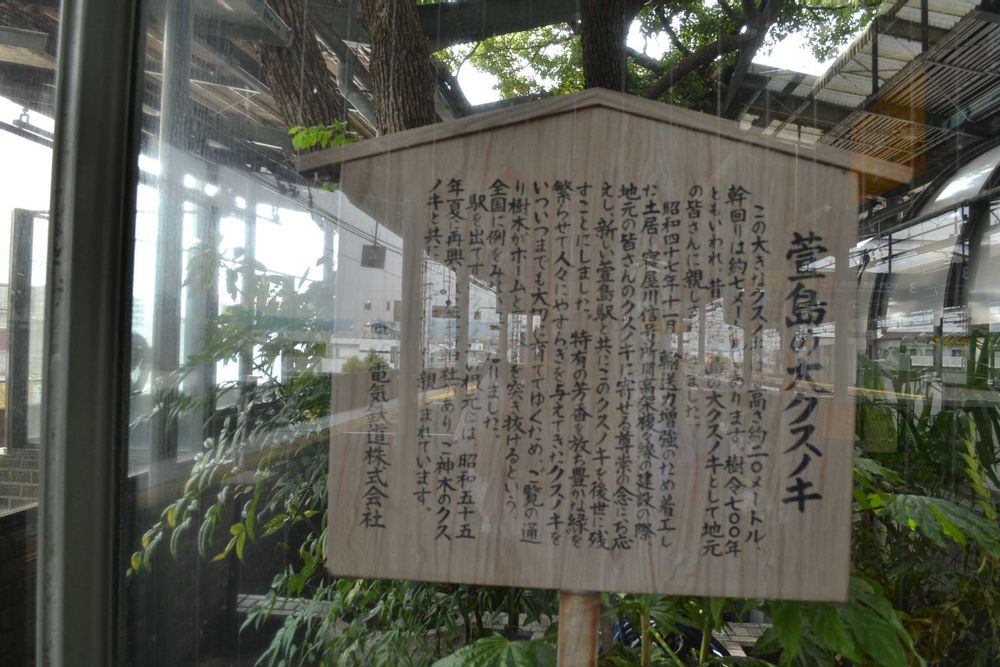 萱島の大クスノキ
この大きなクスノキは、高さ約二〇メートル、
幹回りは約七メートルあります。樹令七〇〇年
ともいわれ、昔 の大クスノキとして地元
の皆さんに親しまれ ました。
昭和四十七年十一月、輸送力増強のため着工し
た土居〜寝屋川信号所間高架複々線の建設の際、
地元の皆さんのクスノキに寄せる尊崇の念にお応
えし、新しい萱島駅と共にこのクスノキを後世に残
すことにしました。特有の芳香を放ち豊かな緑を
繁らせて人々にやすらぎを与えてきたクスノキを
いついつまでも大切に育ててゆくため、ご覧の通
り樹木がホームと を突き抜けるという、
全国に例をみな なりました。
駅を出てす 根元には、昭和五十五
年夏に再興 神社があり、ご神木のクス
ノキと共に 親しまれています。
電気鉄道株式会社